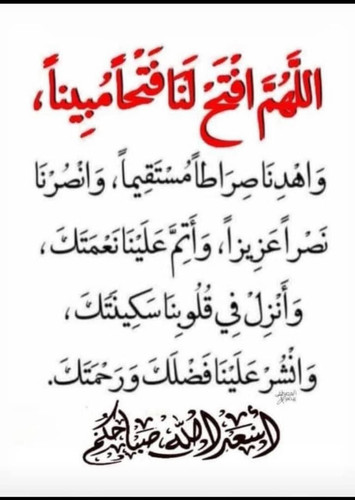 اللَّهُمَّ افْتَحْ لَنَا فَتْحاً مُبِيناً،
وَاهْدِنَا صِرَاطاً مُسْتَقِيماً، وَانْصُرْنَا
نَصْراً عَزِيزاً، وَأَتِمَّ عَلَيْنَا نَعْمَتَكَ،
وَأَنْزِلْ فِي قُلُوبِنَا سَكِينَتَكَ،
وَانْشُرْ عَلَيْنَا فَضْلَكَ وَرَحْمَتَكَ.
أسعد الله صباحكم